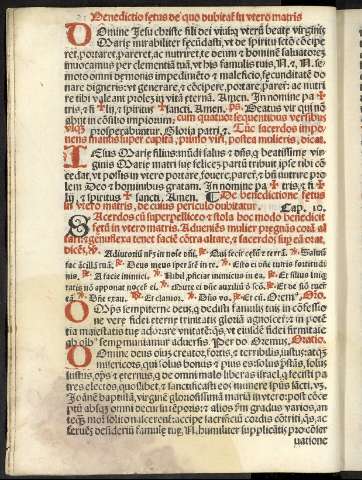 Benedictio fetus de quo dubitat in vtero matris
Omine Jesu christe fili dei viui, qui vterū beate virginis
Marie mirabiliter fecūdasti, vt de spiritu scō cōcipe
ret, portaret, pareret, ac nutriret, te deum & dominū saluatorē
inuocamus per clementiā tuā, vt his famulis tuis, N. & N. se
moto omni demonis impedimēto & maleficio, fecūditatē do
nare digneris: vt generare, & cōcipere, portare, parere: ac nutri
re tibi valeant proles in vitā eternā. Amen. In nomine pa✠
tris, & fi✠lij, & spiritus ✠ sancti. Amen. ps. Beatus vir qui nō
abijt in cōsilio impiorum: cum quatuor sequentibus versibus
vsq; prosperabuntur. Gloria patri &. Tūc sacerdos impo
nens manus super capita, prius viri, postea mulieris, dicat.
Iesus Marie filius mūdi salus & dn̄s, q̄ beatissime vir
ginis Marie matri sue felicē partū tribuit, ipse tibi cō
cedat, vt possis in vtero portare, fouere, parere, & nutrire pro
lem Deo & hominibus gratam. In nomine pa✠tris, & fi✠
lij, & spiritus ✠ sancti. Amen. ¶ De benedictione fetus
in vtero matris, de cuius periculo dubitatur. Cap. 10.
Sacerdos cū superpelliceo & stola hoc modo benedicit
fetū in vtero matris. Adueniēs mulier pregnās corā al
tari & genuflexa tenet faciē cōtra altare, & sacerdos sup eā orat,
dicēs. ℣. Adiutoriū nr̄ȝ in noīe dn̄i. ℟. Qui fecit celū & terrā. ℣. Saluā
fac ācillā tuā. ℟. Deus meus sperātē in te. ℣. Esto ei dn̄e turris fortitudi
nis. ℟. A facie inimici. ℣. Nihil ꝓficiat inimicus in ea. ℟. Et filius iniq
tatis nō apponat nocēe ei. ℣. Mitte ei dn̄e auxiliū ō scō. ℟. Et de siō tuer
eā. ℣. Dn̄e exau. ℟. Et clamor. ℣. Dn̄s vo. ℟. Et cū. Orem⁹. Oro.
Omp̄s sempiterne deus, q̄ dedisti famulis tuis in cōfessio
ne vere fidei eterne trinitatis gloriā agnoscere: & in potē
tia maiestatis tue adorare vnitatē: q̄s, vt eiusdē fidei firmitate
ab oīb⁹ semp muniantur aduersis. Per do. Oremus. Oratio.
Omine deus oim creator, fortis, & terribilis, iustus: atq;
misericors, qui solus bonus & pius es: solus p̄stās, solus
iustus, oīps & eternus, q̄ de omni malo liberas israel, q̄ fecisti pa
tres electos, quoslibet, & sanctificasti eos munere spūs sācti, vȝ
Joānē baptistā, virginē gloriosissimā mariā in vtero: post cōce
ptū absq; omni decursu tēporis: & alios s̄m gradus varios, an
teq̄ȝ mox soli nascerent: accipe sacrificiū cordis cōtriti, q̄s, ac
feruēs desideriū famule tue, N. humiliter supplicātis pro cōser
uatione